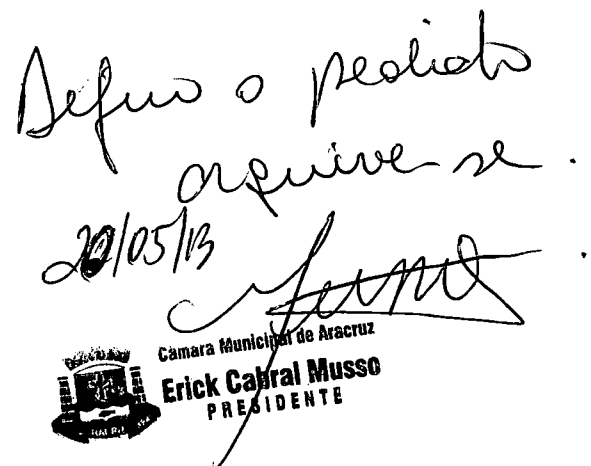 Defiro o pedido
arquive-se.
20/05/13
Câmara Municipal de Aracruz
Erick Cabral Musso
PRESIDENTE